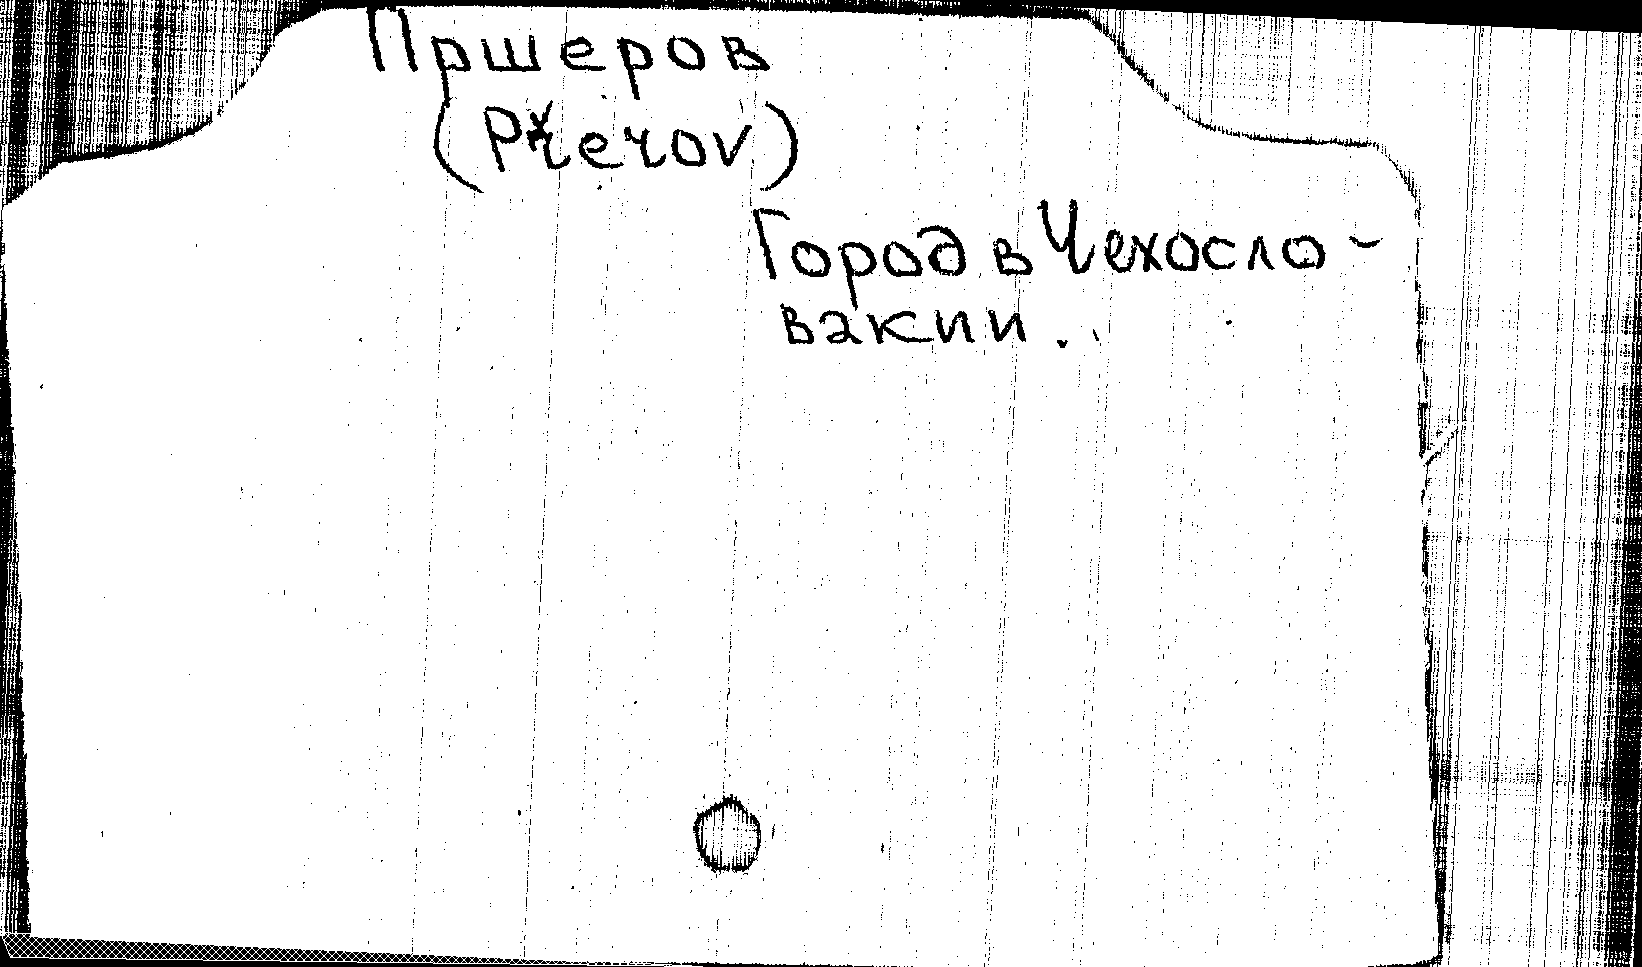 Пршеров
(Přerov)
Город в Чехосло-
вакии.